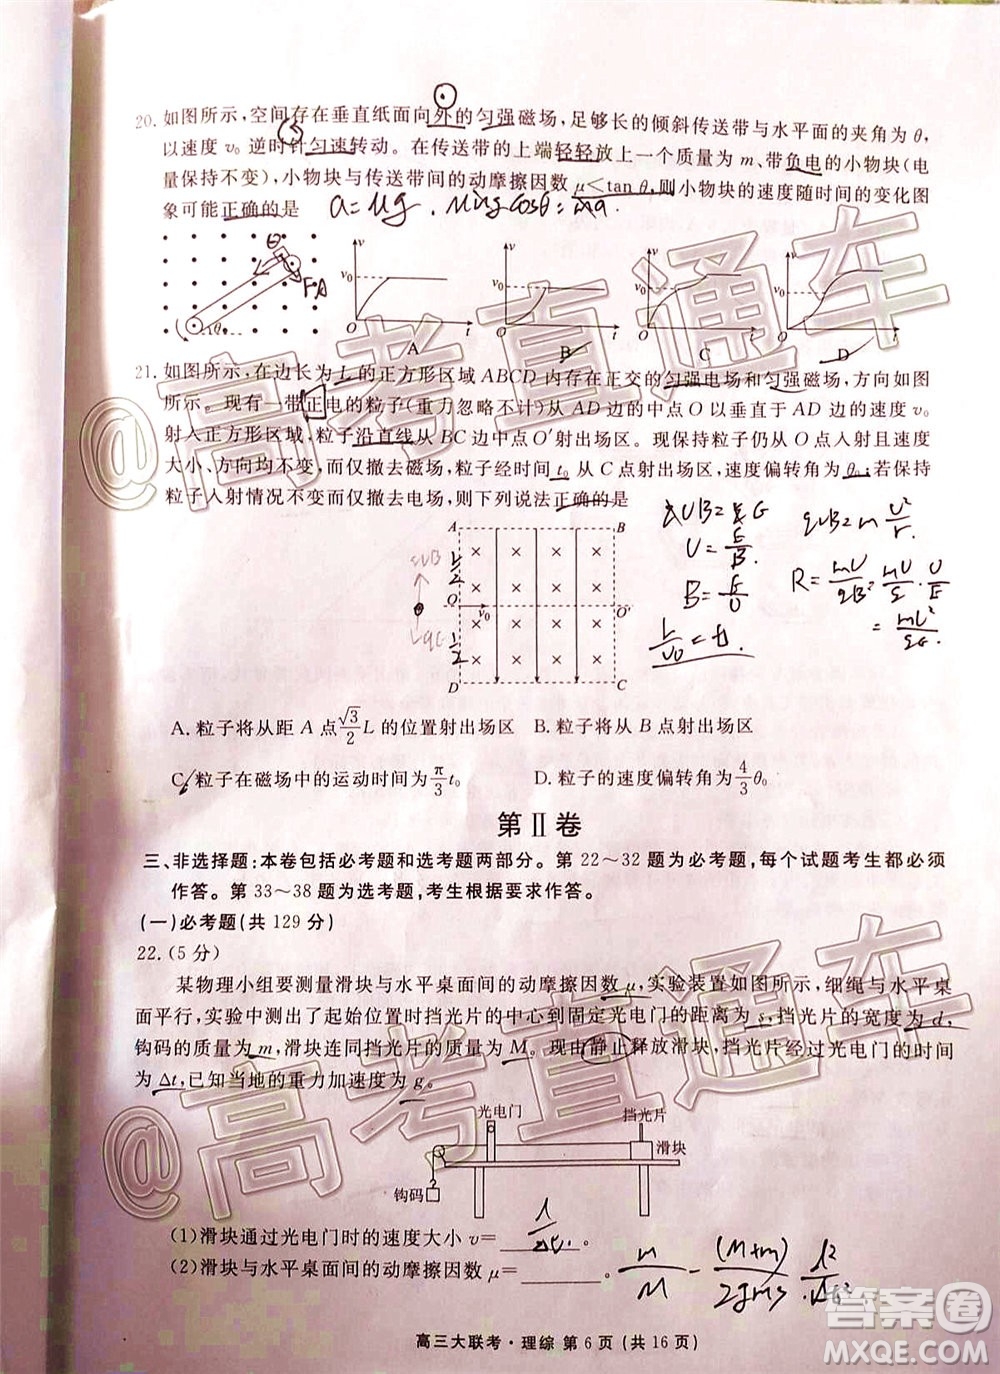 20. 如图所示,空间存在垂直纸面向外的匀强磁场,足够长的倾斜传送带与水平面的夹角为 θ,
以速度 v₀ 逆时针匀速转动。在传送带的上端轻轻放上一个质量为 m、带负电的小物块(电
量保持不变),小物块与传送带间的动摩擦因数 μ<tan θ,则小物块的速度随时间的变化图
象可能正确的是 a=μg. μmgcosθ=ma.
θ
v v₀ O t
v v₀ O t
v v₀ O t
v v₀ O t
A B C D
21. 如图所示,在边长为 L 的正方形区域 ABCD 内存在正交的匀强电场和匀强磁场,方向如图
所示。现有一带正电的粒子(重力忽略不计)从 AD 边的中点 O 以垂直于 AD 边的速度 v₀
射入正方形区域,粒子沿直线从 BC 边中点 O′射出场区。现保持粒子仍从 O 点射入,速度
大小、方向均不变,仅撤去磁场,粒子经时间 t₀ 从 C 点射出场区,速度偏转角为 θ₀;若保持
粒子入射情况不变而仅撤去电场,则下列说法正确的是
A B
O v₀ O′
D C
qvB
L/2
L/2
v=E/B.
B=E/v
L/v₀=t₀
qvB=m v²/r.
R=mv/qB=mv/q·v/E
=mv²/qE
A. 粒子将从距 A 点 √3/2 L 的位置射出场区 B. 粒子将从 B 点射出场区
C. 粒子在磁场中的运动时间为 π/3 t₀ D. 粒子的速度偏转角为 4/3 θ₀
第Ⅱ卷
三、非选择题:本卷包括必考题和选考题两部分。第 22～32 题为必考题,每个试题考生都必须
作答。第 33～38 题为选考题,考生根据要求作答。
(一)必考题(共 129 分)
22. (5 分)
某物理小组要测量滑块与水平桌面间的动摩擦因数 μ,实验装置如图所示,细绳与水平桌
面平行,实验中测出了起始位置时挡光片的中心到固定光电门的距离为 s,挡光片的宽度为 d,
钩码的质量为 m,滑块连同挡光片的质量为 M。现由静止释放滑块,挡光片经过光电门的时间
为 Δt,已知当地的重力加速度为 g。
光电门 挡光片
滑块
钩码
(1)滑块通过光电门时的速度大小 v=d/Δt.。
(2)滑块与水平桌面间的动摩擦因数 μ=________。 m/M - (M+m)/2gMs · d²/Δt²
高三大联考·理综 第 6 页(共 16 页)
@高考直通车
@高考直通车
答案圈
MXQE.COM